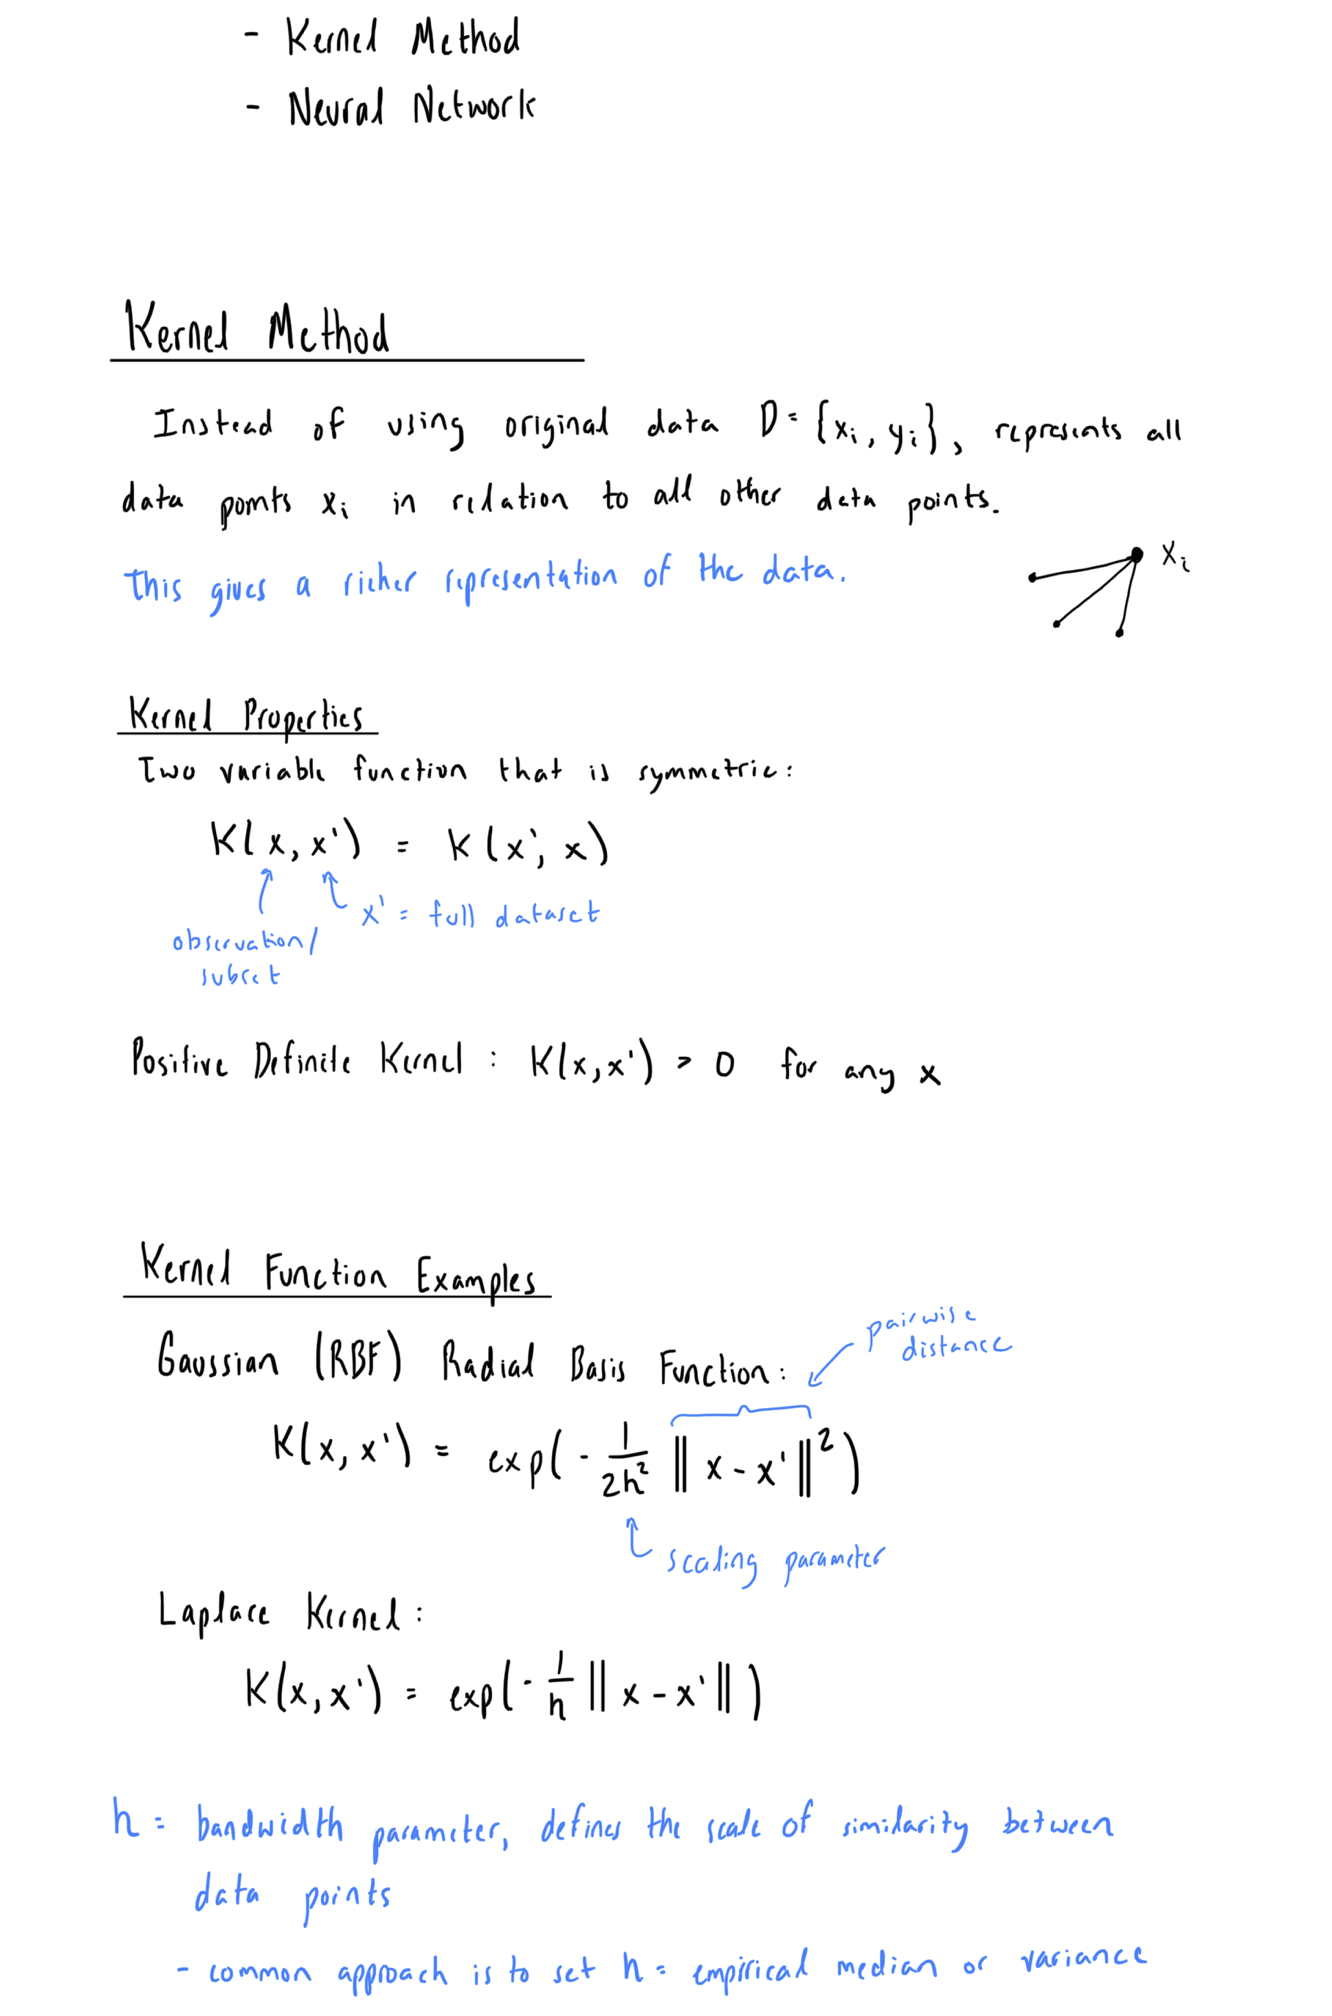 - Kernel Method
- Neural Network
Kernel Method
Instead of using original data D = {xᵢ, yᵢ}, represents all
data points xᵢ in relation to all other data points.
this gives a richer representation of the data.
xᵢ
Kernel Properties
Two variable function that is symmetric:
K(x, x') = K(x', x)
x' = full dataset
observation/
subset
Positive Definite Kernel: K(x,x') > 0 for any x
Kernel Function Examples
pairwise
distance
Gaussian (RBF) Radial Basis Function:
K(x, x') = exp(-1/2h² ||x - x'||²)
scaling parameter
Laplace Kernel:
K(x,x') = exp(-1/h ||x - x'||)
h = bandwidth parameter, defines the scale of similarity between
data points
- common approach is to set h = empirical median or variance